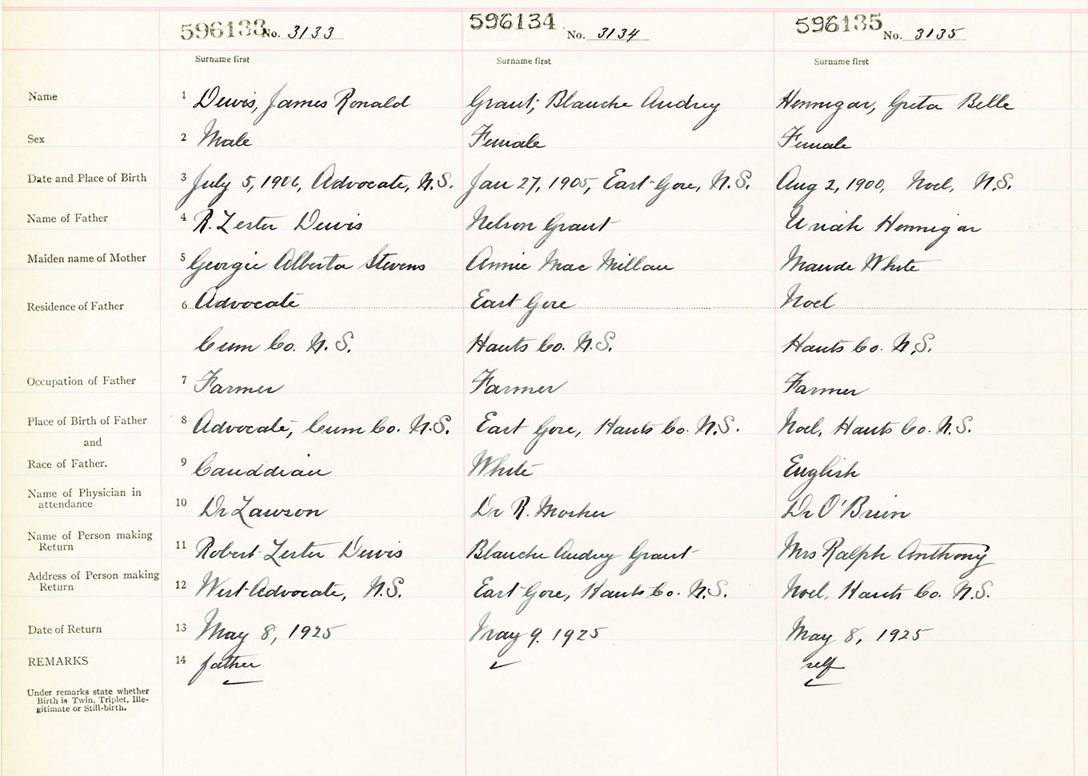 596133 No. 3133 596134 No. 3134 596135 No. 3135
Surname first Surname first Surname first
Name 1 Dewis, James Ronald Grant, Blanche Audrey Hennigar, Greta Belle
Sex 2 Male Female Female
Date and Place of Birth 3 July 5, 1906, Advocate, N.S. Jan 27, 1905, East Gore, N.S. Aug 2, 1900, Noel, N.S.
Name of Father 4 R. Lester Dewis Nelson Grant Uriah Hennigar
Maiden name of Mother 5 Georgie Alberta Stevens Annie MacMillan Maude White
Residence of Father 6 Advocate East Gore Noel
Cum Co. N.S. Hants Co. N.S. Hants Co. N.S.
Occupation of Father 7 Farmer Farmer Farmer
Place of Birth of Father 8 Advocate, Cum Co. N.S. East Gore, Hants Co. N.S. Noel, Hants Co. N.S.
and
Race of Father. 9 Canadian White English
Name of Physician in
attendance 10 Dr Lawson Dr R. Mosher Dr O'Brien
Name of Person making
Return 11 Robert Lester Dewis Blanche Audrey Grant Mrs Ralph Anthony
Address of Person making
Return 12 West Advocate, N.S. East Gore, Hants Co. N.S. Noel, Hants Co. N.S.
Date of Return 13 May 8, 1925 May 9. 1925 May 8, 1925
REMARKS 14 father self
Under remarks state whether
Birth is Twin, Triplet, Ille-
gitimate or Still-birth.